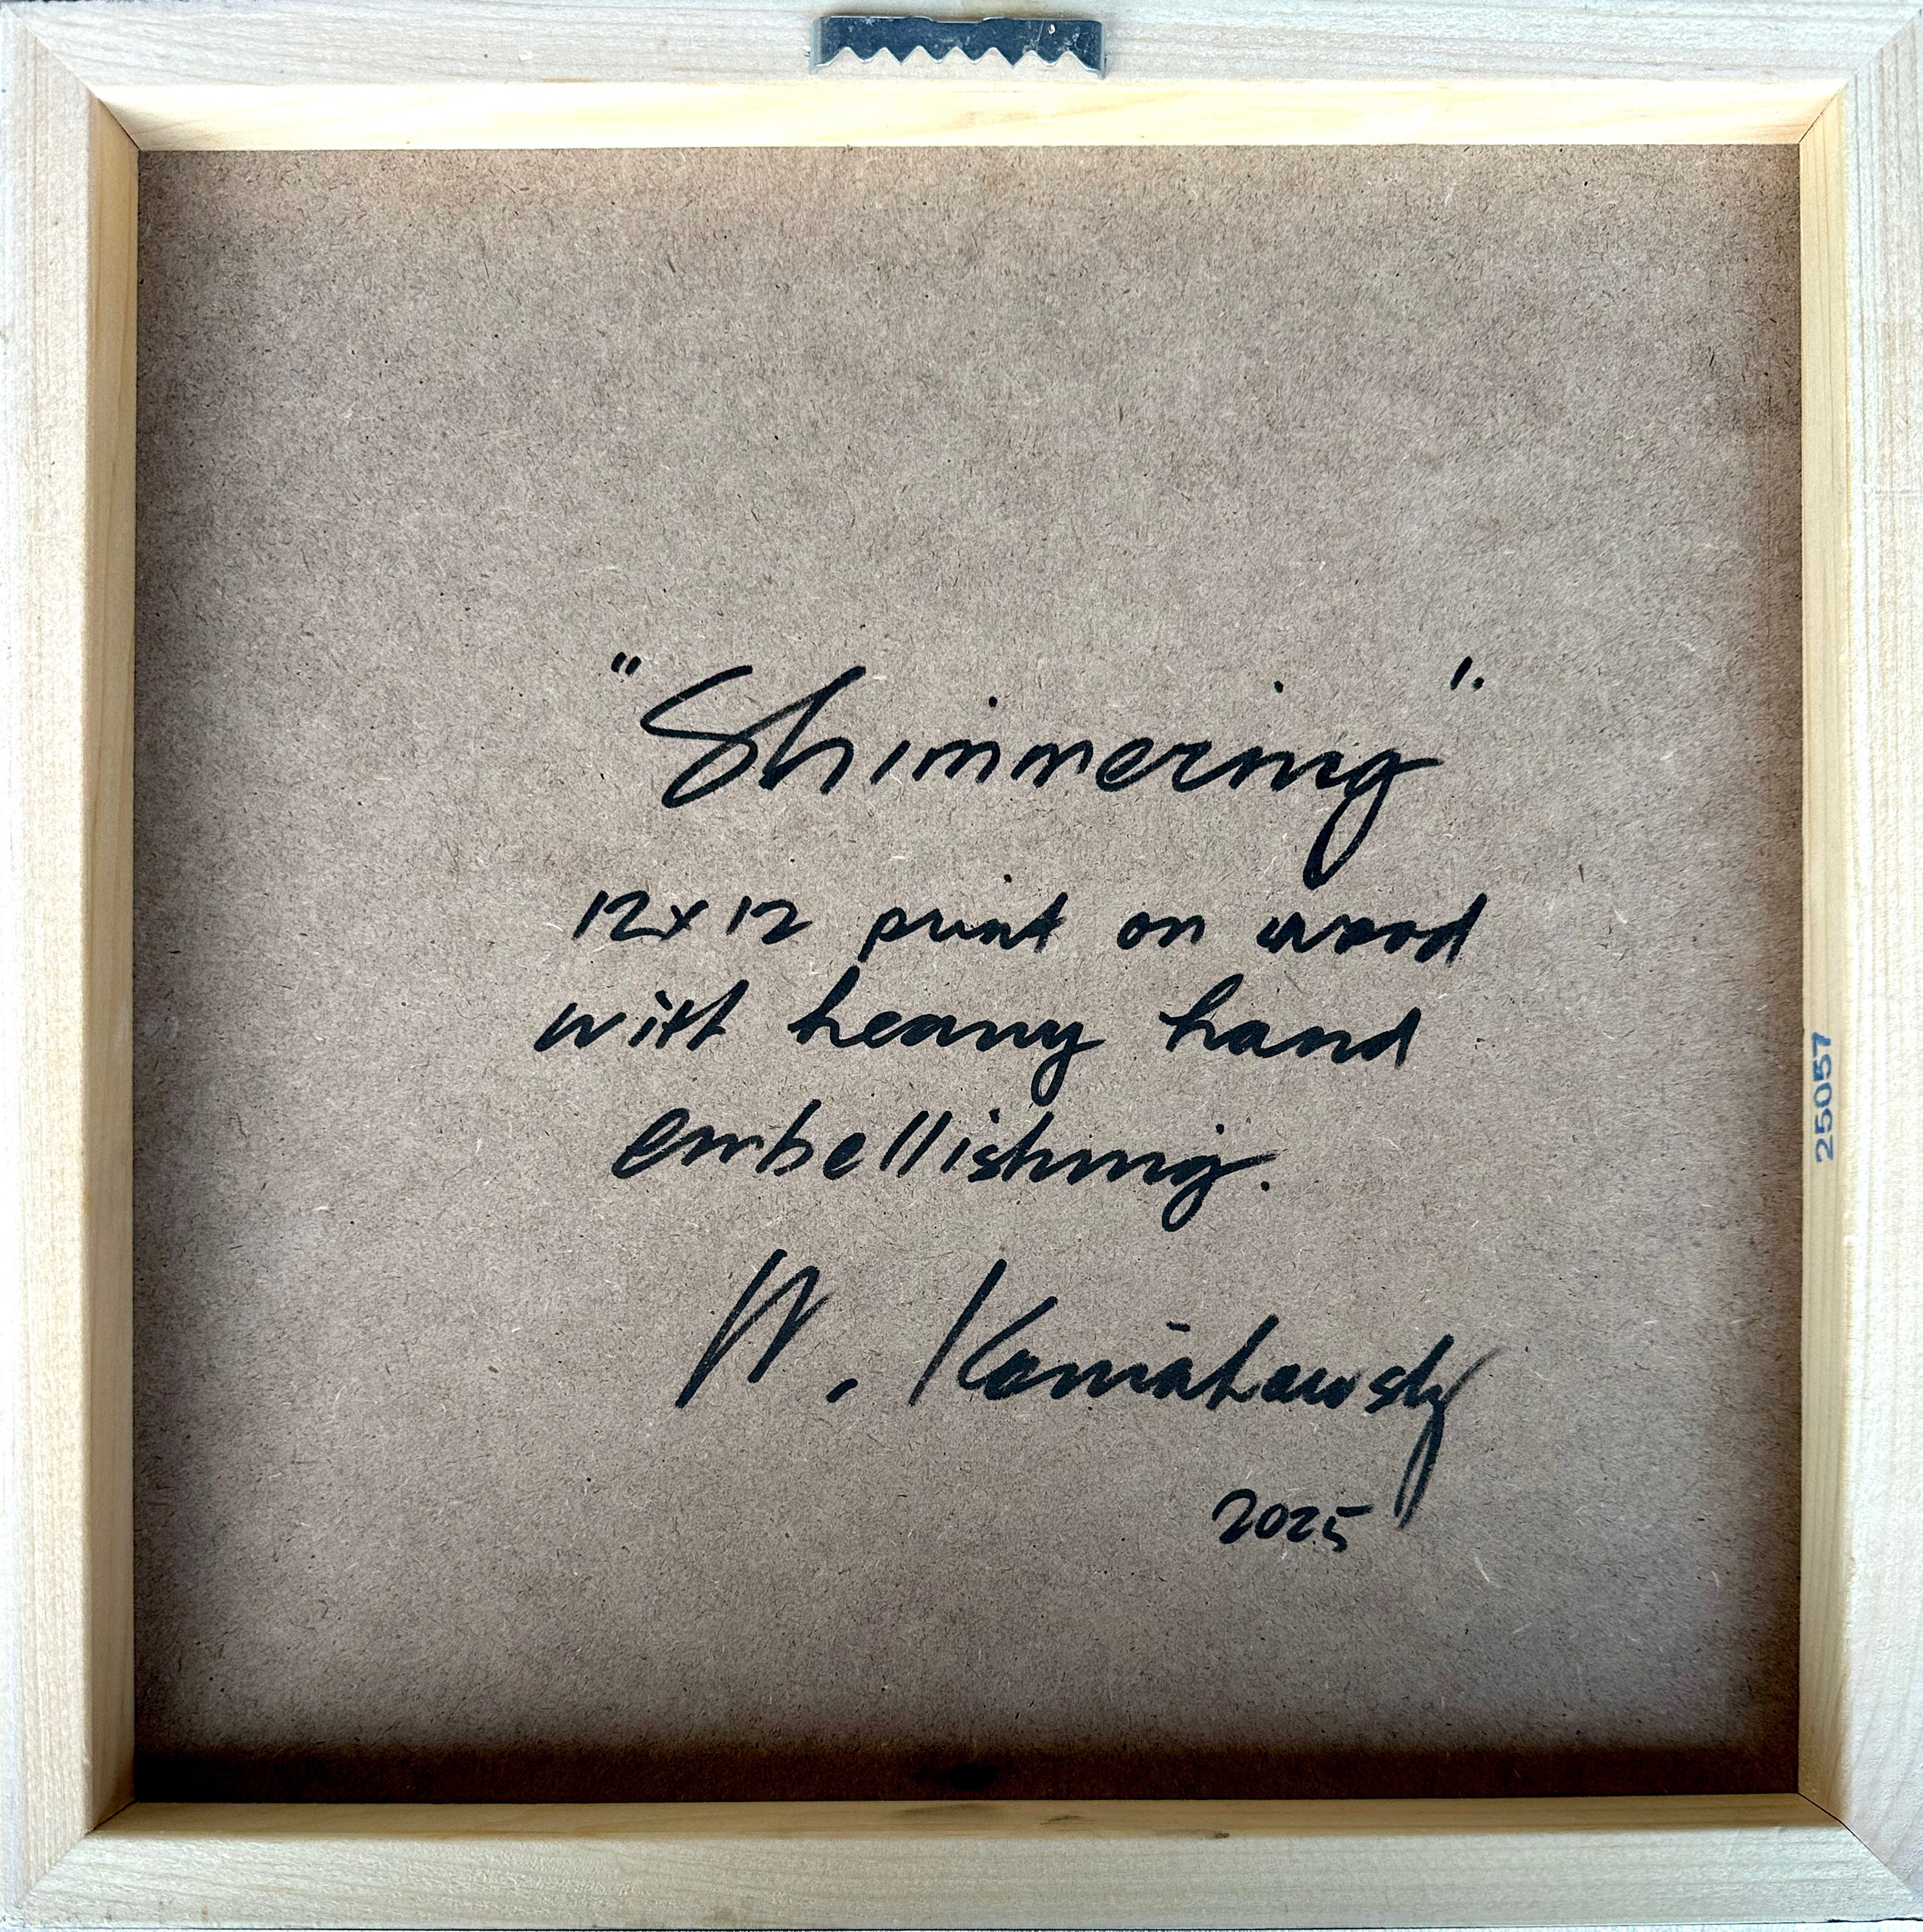 "Shimmering".
12x12 print on wood
with heavy hand
embellishing.
W. Kamahowsky
2025
25057